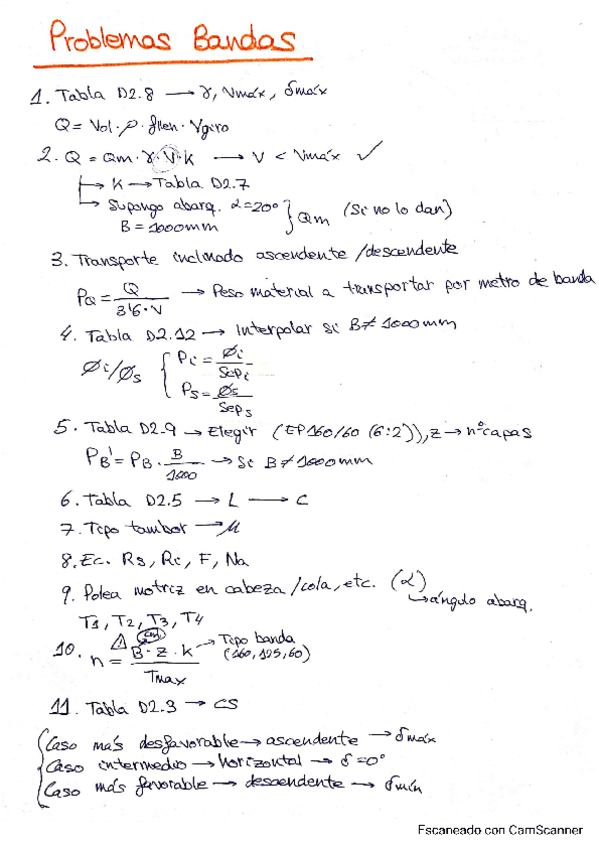 Problemas Bandas
1. Tabla D2.8 → γ, Vmáx, δmáx
Q = Vol · ρ · fllen · Vgiro
2. Q = Qm · γ · V · K → V < Vmáx ✓
→ K → Tabla D2.7
→ Supongo abarq. α=20° } Qm (Si no lo dan)
B = 1000mm
3. Transporte inclinado ascendente/descendente
PQ = Q / 3'6 · V → Peso material a transportar por metro de banda
4. Tabla D2.12 → Interpolar si B ≠ 1000mm
Øi/Øs { Pi = Øi / Sepi
Ps = Øs / Seps
5. Tabla D2.9 → Elegir (EP160/60 (6:2)), z → nº capas
PB' = PB · B / 1000 → Si B ≠ 1000mm
6. Tabla D2.5 → L → C
7. Tipo tambor → μ
8. Ec. Rs, Ri, F, Na
9. Polea motriz en cabeza/cola, etc. (α)
→ ángulo abarq.
T1, T2, T3, T4
10. n = B · z · k / Tmax
⚠ cm → Tipo banda
(160, 125, 60)
11. Tabla D2.3 → CS
Caso más desfavorable → ascendente → δmáx
Caso intermedio → horizontal → δ = 0°
Caso más favorable → descendente → δmín
Escaneado con CamScanner